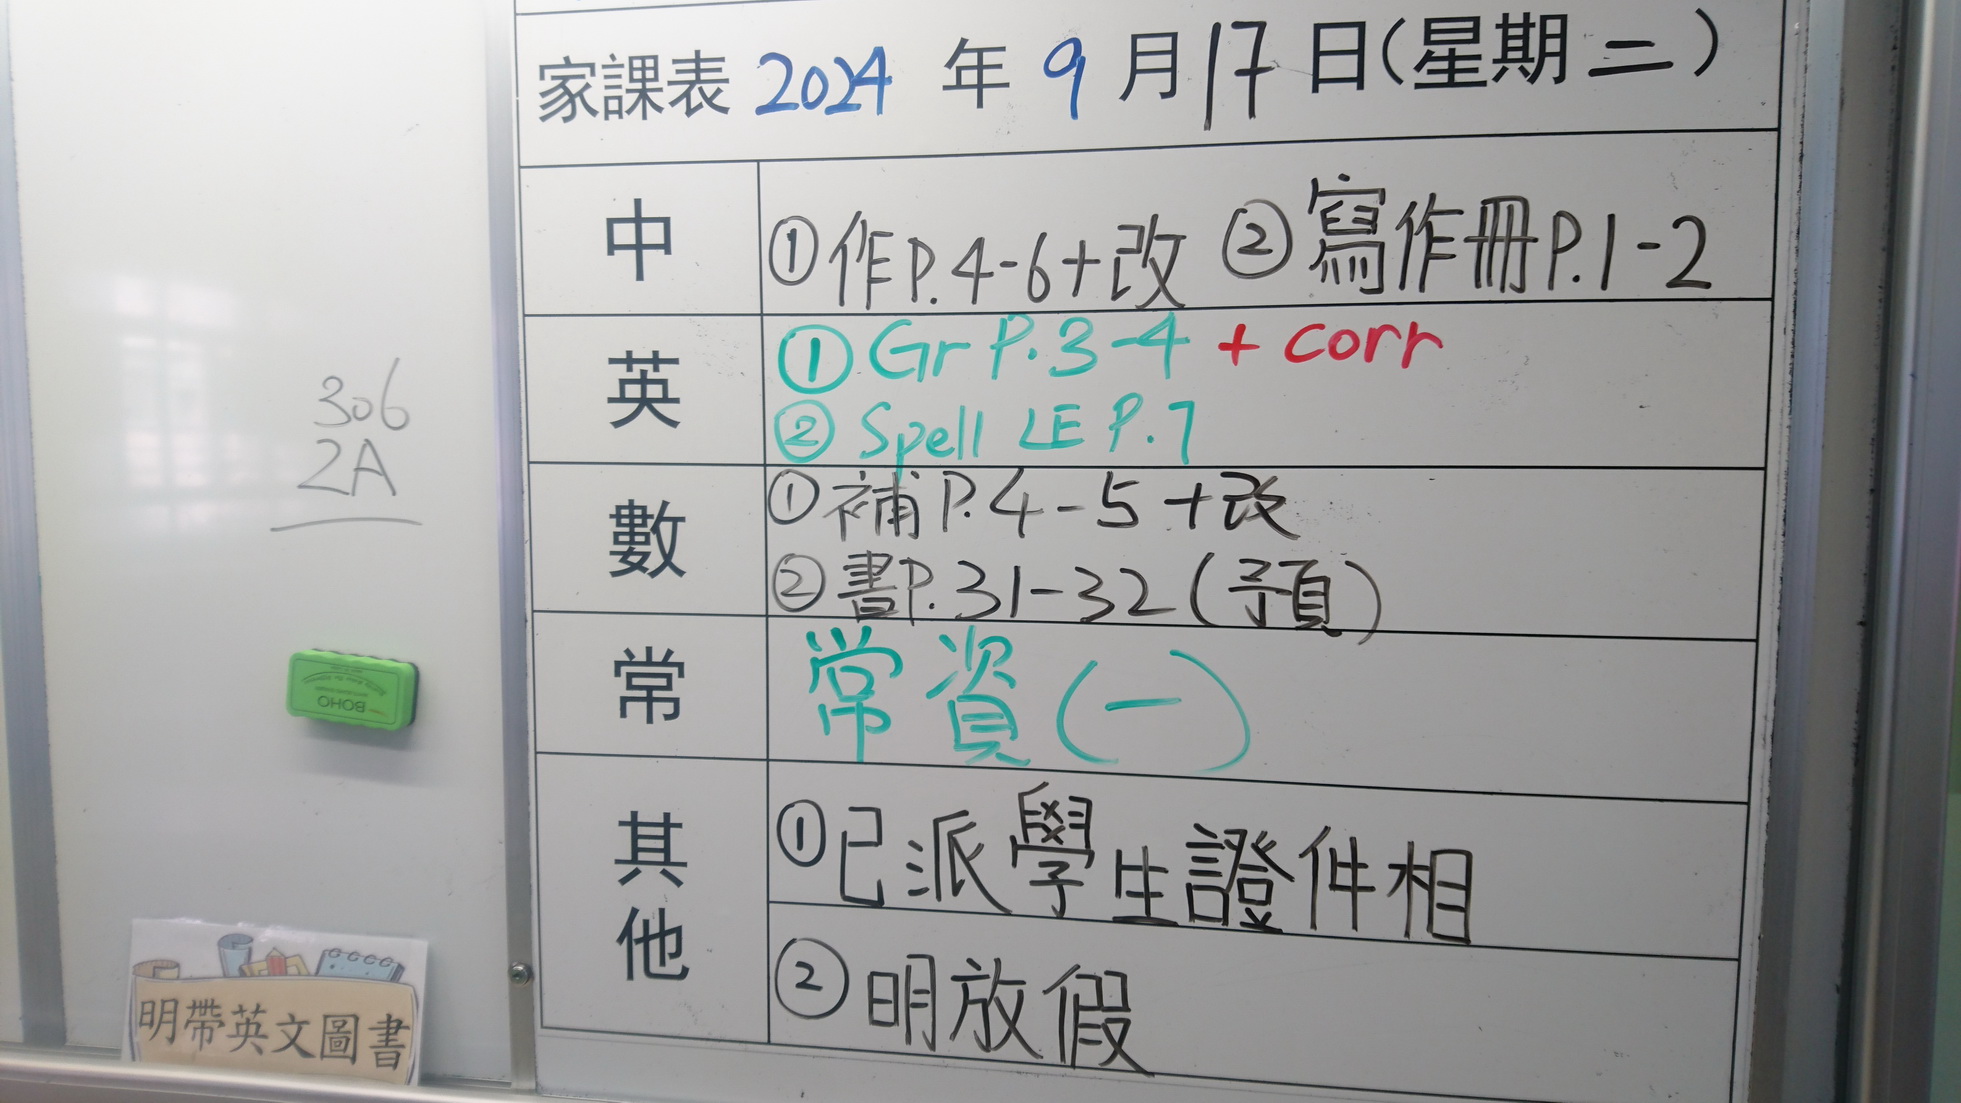 家課表 2024 年 9 月 17 日(星期 二)
中
①作P.4-6+改 ②寫作冊P.1-2
英
① Gr P.3-4 + corr
② Spell LE P.7
數
①補P.4-5+改
②書P.31-32(預)
常
常資(一)
其他
①已派學生證件相
②明放假
306
2A
BOHO
明帶英文圖書